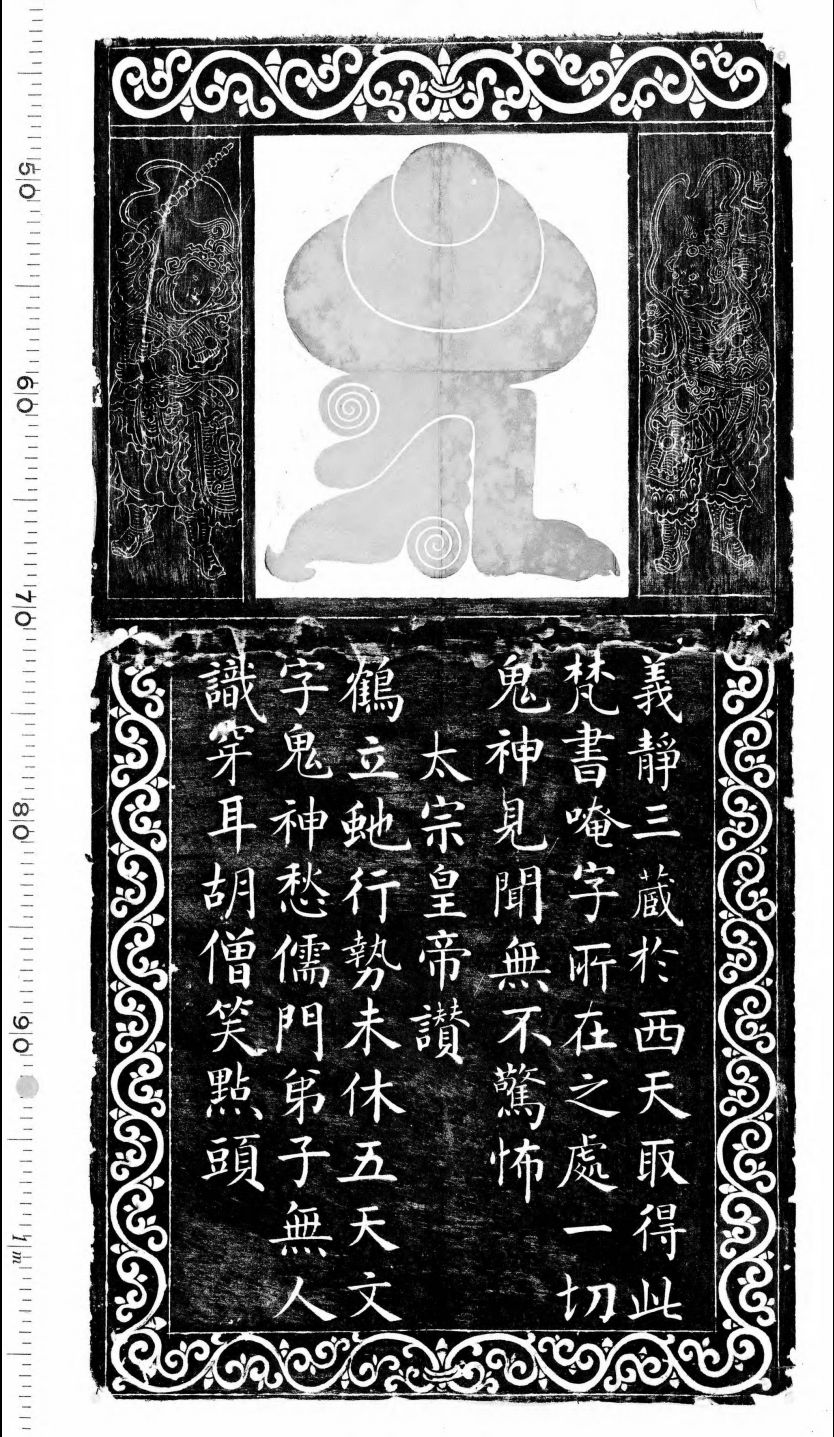 義靜三蔵於西天取得此
梵書唵字所在之處一切
鬼神見聞無不驚怖
太宗皇帝讃
鶴立虵行勢未休五天文
字鬼神愁儒門弟子無人
識穿耳胡僧笑點頭
50
60
70
80
90
1m